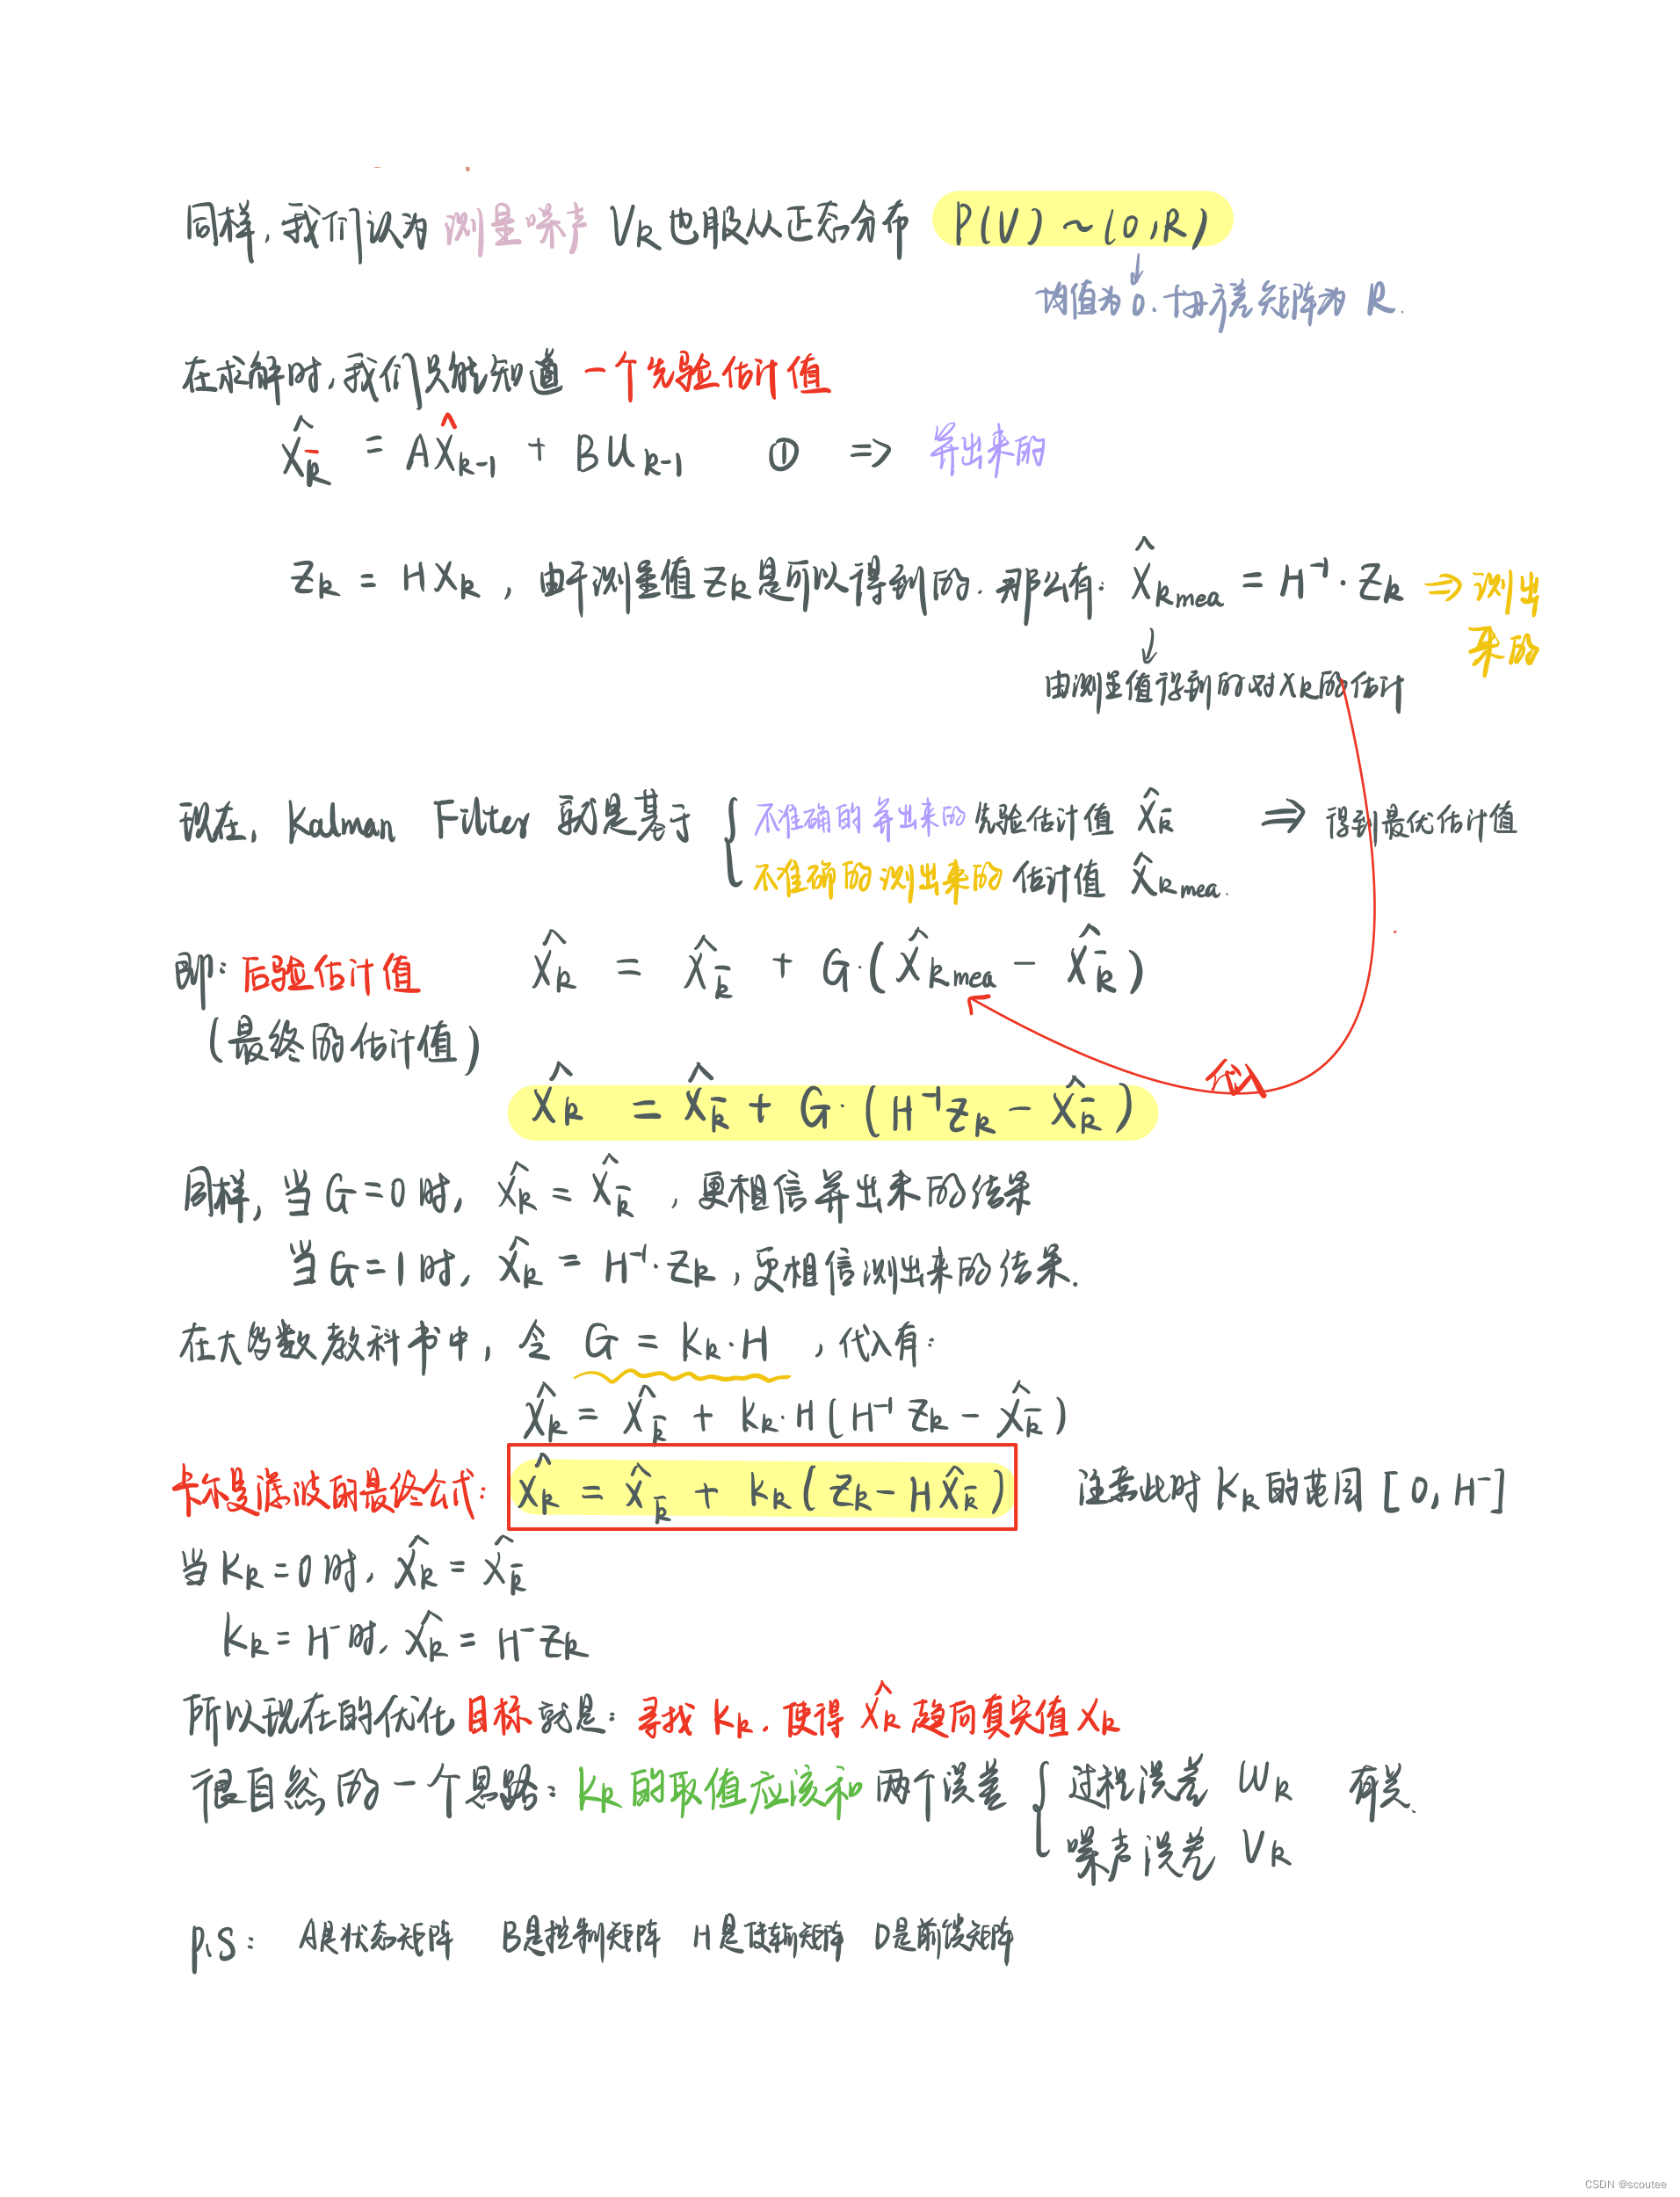 同样,我们认为 测量噪声 Vk 也服从正态分布 P(V) ~ (0,R)
↓
均值为0.协方差矩阵为 R.
在求解时,我们只能知道 一个先验估计值
x̂k̄ = Ax̂k-1 + BUk-1 ① ⇒ 算出来的
Zk = HXk , 由于测量值Zk是可以得到的.那么有: x̂kmea = H⁻¹·Zk ⇒ 测出
来的
↓
由测量值得到的对Xk的估计
现在, Kalman Filter 就是基于 { 不准确的 算出来的 先验估计值 x̂k̄ ⇒ 得到最优估计值
不准确的 测出来的 估计值 x̂kmea.
即: 后验估计值 x̂k = x̂k̄ + G·(x̂kmea − x̂k̄)
(最终的估计值)
代入
x̂k = x̂k̄ + G·(H⁻¹Zk − x̂k̄)
同样, 当G=0时, x̂k = x̂k̄ , 更相信算出来的结果
当G=1时, x̂k = H⁻¹·Zk, 更相信测出来的结果.
在大多数教科书中, 令 G = Kk·H , 代入有:
x̂k = x̂k̄ + Kk·H(H⁻¹Zk − x̂k̄)
卡尔曼滤波的最终公式: x̂k = x̂k̄ + Kk(Zk − Hx̂k̄) 注意此时Kk的范围[0, H⁻]
当Kk=0时, x̂k = x̂k̄
Kk=H⁻时, x̂k = H⁻Zk
所以现在的优化目标就是: 寻找Kk, 使得 x̂k 趋向真实值Xk
很自然的一个思路: Kk的取值应该和 两个误差 { 过程误差 Wk 有关.
噪声误差 Vk
P.S: A是状态矩阵 B是控制矩阵 H是传输矩阵 D是前馈矩阵
CSDN @scoutee